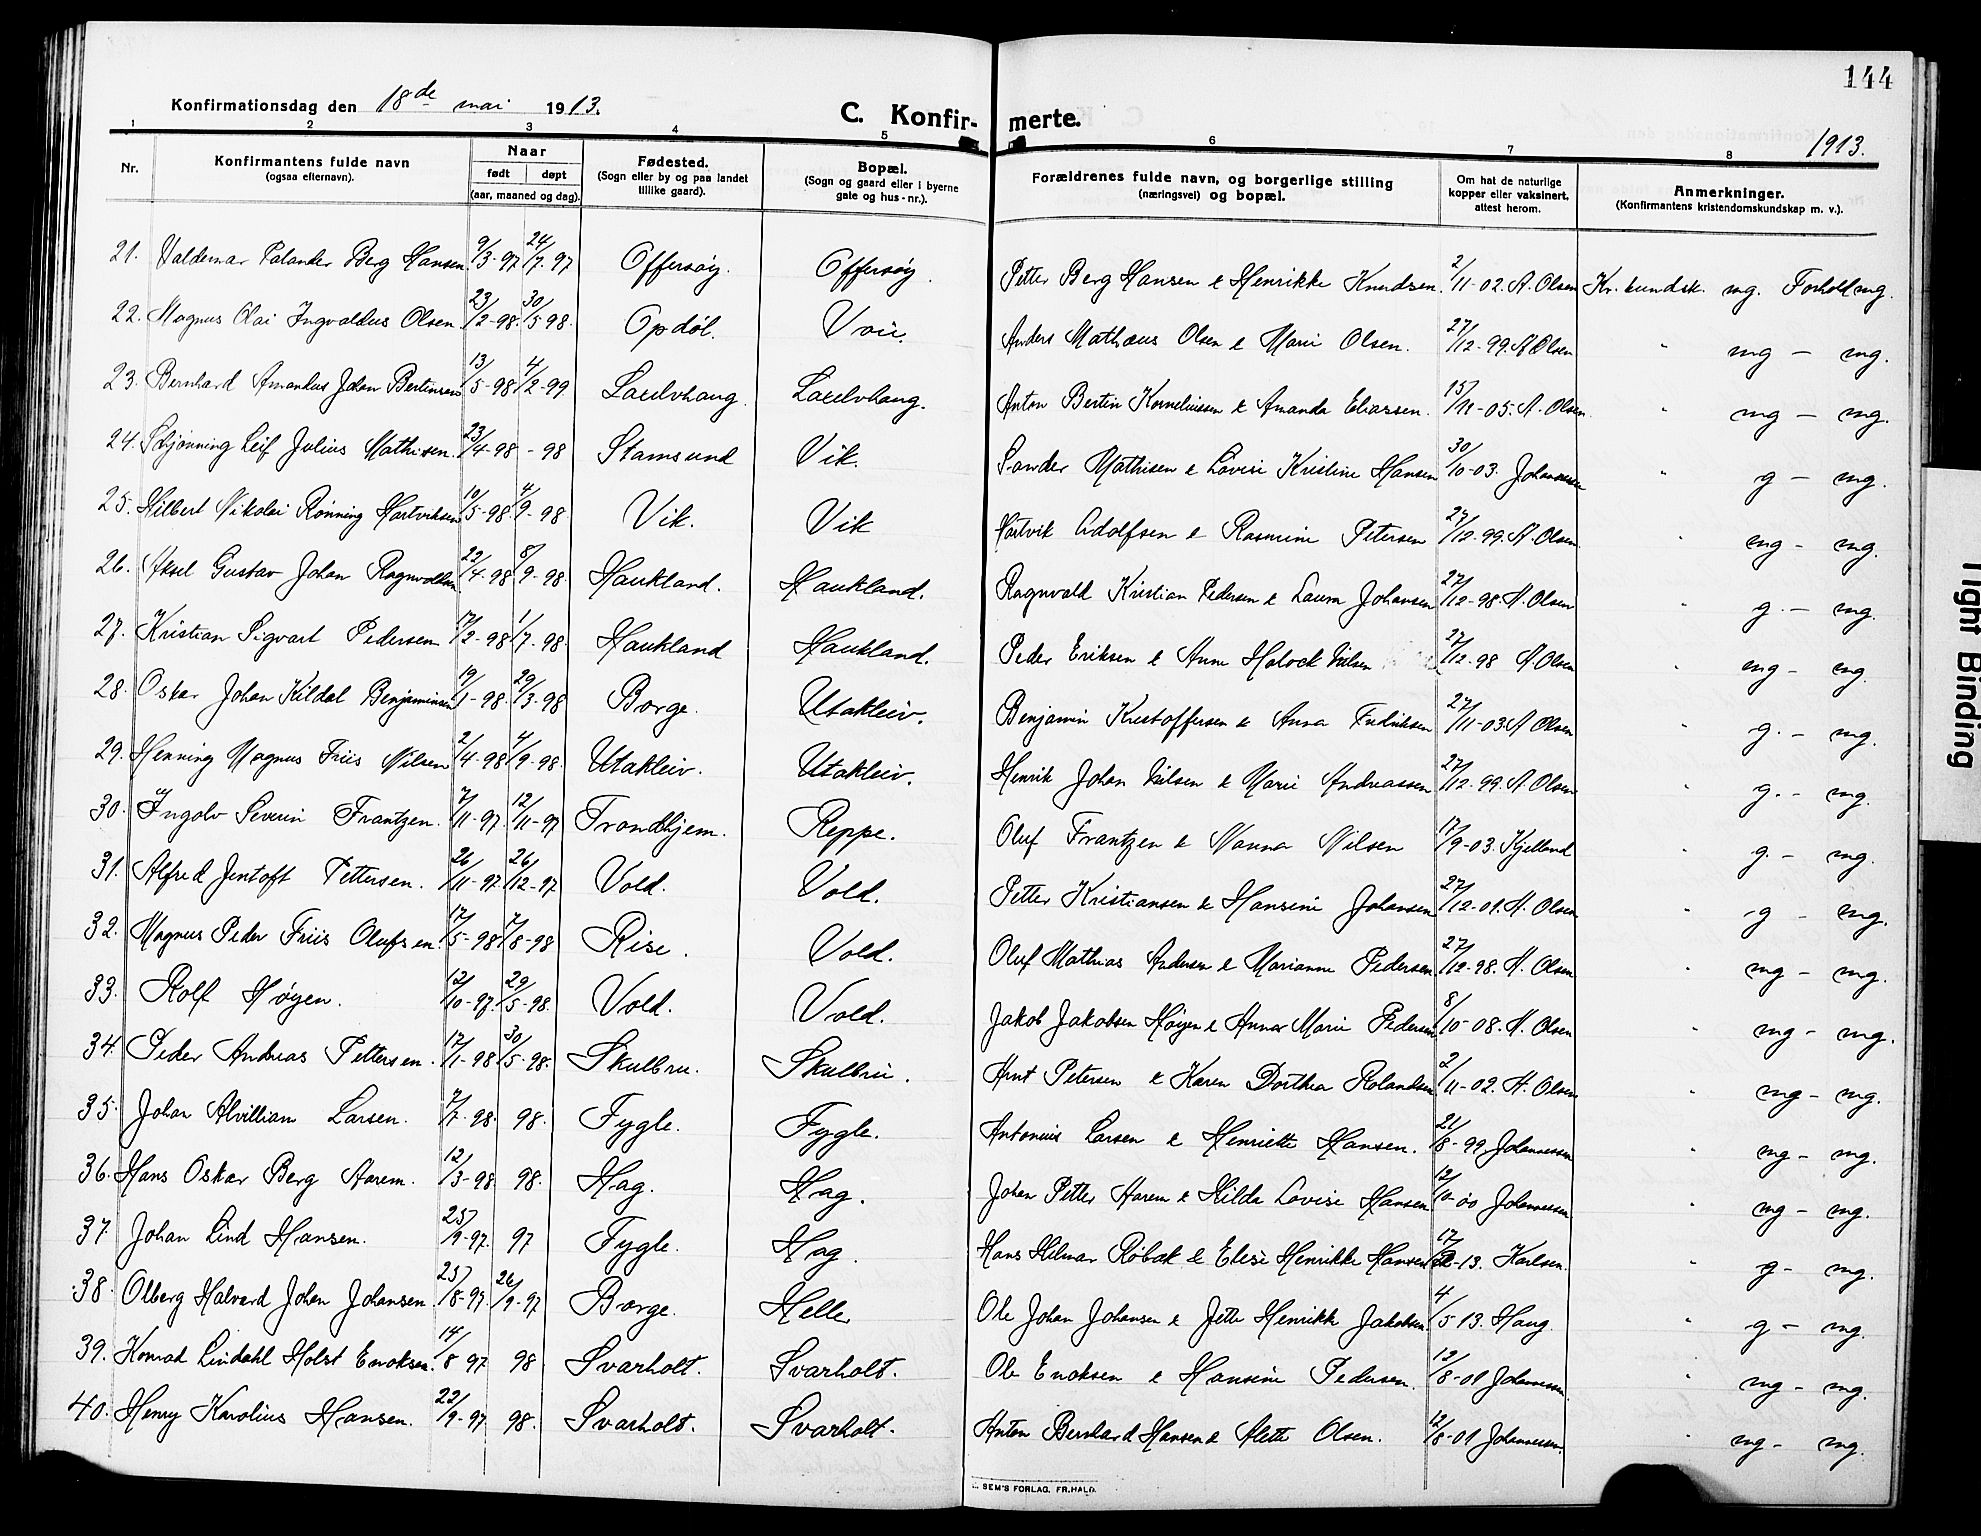 144
Konfirmationsdag den 18de mai 1913.
C. Konfir- merte.
1913.
1 2 3 4 5 6 7 8
Nr.
Konfirmantens fulde navn
(ogsaa efternavn).
Naar
født døpt
(aar, maaned og dag).
Fødested.
(Sogn eller by og paa landet
tillike gaard).
Bopæl.
(Sogn og gaard eller i byerne
gate og hus-nr.).
Forældrenes fulde navn, og borgerlige stilling
(næringsvei) og bopæl.
Om hat de naturlige
kopper eller vaksinert,
attest herom.
Anmerkninger.
(Konfirmantens kristendomskundskap m. v.).
21. Valdemar Palander Berg Hansen 9/3-97 24/7-97 Offersøy. Offersøy. Petter Berg Hansen & Henrikke Knudsen. 2/11-02. A. Olsen Kr. kundsk. mg. Forhold mg.
22. Magnus Olai Ingvaldus Olsen 23/2-98. 30/5 98. Opdøl. Voie. Anders Mathæus Olsen & Marie Olsen. 27/12-99. A Olsen " mg - mg.
23. Bernhard Amandus Johan Bertinsen 13/5-98 4/2-99 Anton Bertin Korneliussen & Amanda Eliassen. 15/11-05. A. Olsen " mg - mg.
24. Skjønning Leif Julius Mathisen. 23/4-98 - 98 Stamsund Vik. Sander Mathisen & Lovise Kristine Hansen 30/10-03. Johannessen " g - mg.
25. Hilbert Nikolai Rønning Hartviksen 10/5-98 4/9-98 Vik. Vik Hartvik Adolfsen & Rasmine Petersen 27/12-99. A. Olsen. " mg - mg.
26. Aksel Gustav Johan Ragnvaldsen 22/4-98 8/9-98. Haukland. Haukland. Ragnvald Kristian Pedersen & Laura Johansen 27/12-98. A. Olsen " g. - mg.
27. Kristian Sigvart Pedersen 17/2-98 1/7-98. Haukland Haukland. Peder Eriksen & Anne Nilsen 27/12-98 A Olsen " mg - mg.
28. Oskar Johan Kildal Benjaminsen 19/1-98. 29/3-98 Borge. Utakleiv. Benjamin Kristoffersen & Anna Fredriksen 27/11-03. A Olsen " g. - mg.
29. Henning Magnus Friis Nilsen 2/4-98 4/9-98. Utakleiv. Utakleiv. Henrik Johan Nilsen & Marie Andreassen 27/12-99. A Olsen " g. - mg.
30. Ingolv Severin Frantzen. 7/11-97. 12/11-97 Trondhjem. Reppe. Oluf Frantzen & Nanna Nilsen 17/9-03. Kjelland " g. - mg.
31. Alfred Jentoft Pettersen. 26/11-97 26/12-97 Vold. Vold. Petter Kristiansen & Hansine Johansen 27/12-01. A. Olsen " g - mg.
32. Magnus Peder Friis Olufsen. 17/5-98 7/8-98 Rise. Vold. Oluf Mathias Andersen & Marianne Pedersen 27/12-98. A. Olsen " mg - mg.
33. Rolf Høyen. 12/10-97. 29/5-98. Vold. Vold. Jakob Jakobsen Høyen & Anna Marie Pedersen 8/10-08. A. Olsen " mg - mg.
34. Peder Andreas Pettersen. 17/1-98 30/5-98. Skulbru. Skulbru. Arnt Petersen & Karen Dorthea Rolandsen 2/11-02. A. Olsen " mg - mg.
35. Johan Alvilliam Larsen. 7/7-98. 98. Fygle. Fygle. Antonius Larsen & Henriette Hansen. 21/8-99 Johannessen " mg - mg.
36. Hans Oskar Berg Aarem. 12/3-98 98. Hag. Hag. Johan Petter Aarem & Hilda Lovise Hansen 12/10-00 Johannessen " mg - mg.
37. Johan Lind Hansen. 25/9-97. 97 Fygle. Hag. Hans Hilmar Røbæk & Elise Henrikke Hansen -13. Karlsen. " g - mg.
38. Olberg Halvard Johan Johansen 25/8-97 26/9-97 Borge. Helle Ole Johan Johansen & Jette Henrikke Jakobsen 4/5 13. Haug. " g - mg.
39. Konrad Lindahl Holst Enoksen. 14/8 97 98 Svarholt. Svarholt. Ole Enoksen & Hansine Pedersen. 12/8-01 Johannessen. " mg - mg.
40. Henry Karolius Hansen. 22/9-97 98. Svarholt. Svarholt. Anton Bernhard Hansen & Alette Olsen. 12/8-01 Johannessen. " mg - mg.
SEM'S FORLAG, FR.HALD.
Tight Binding